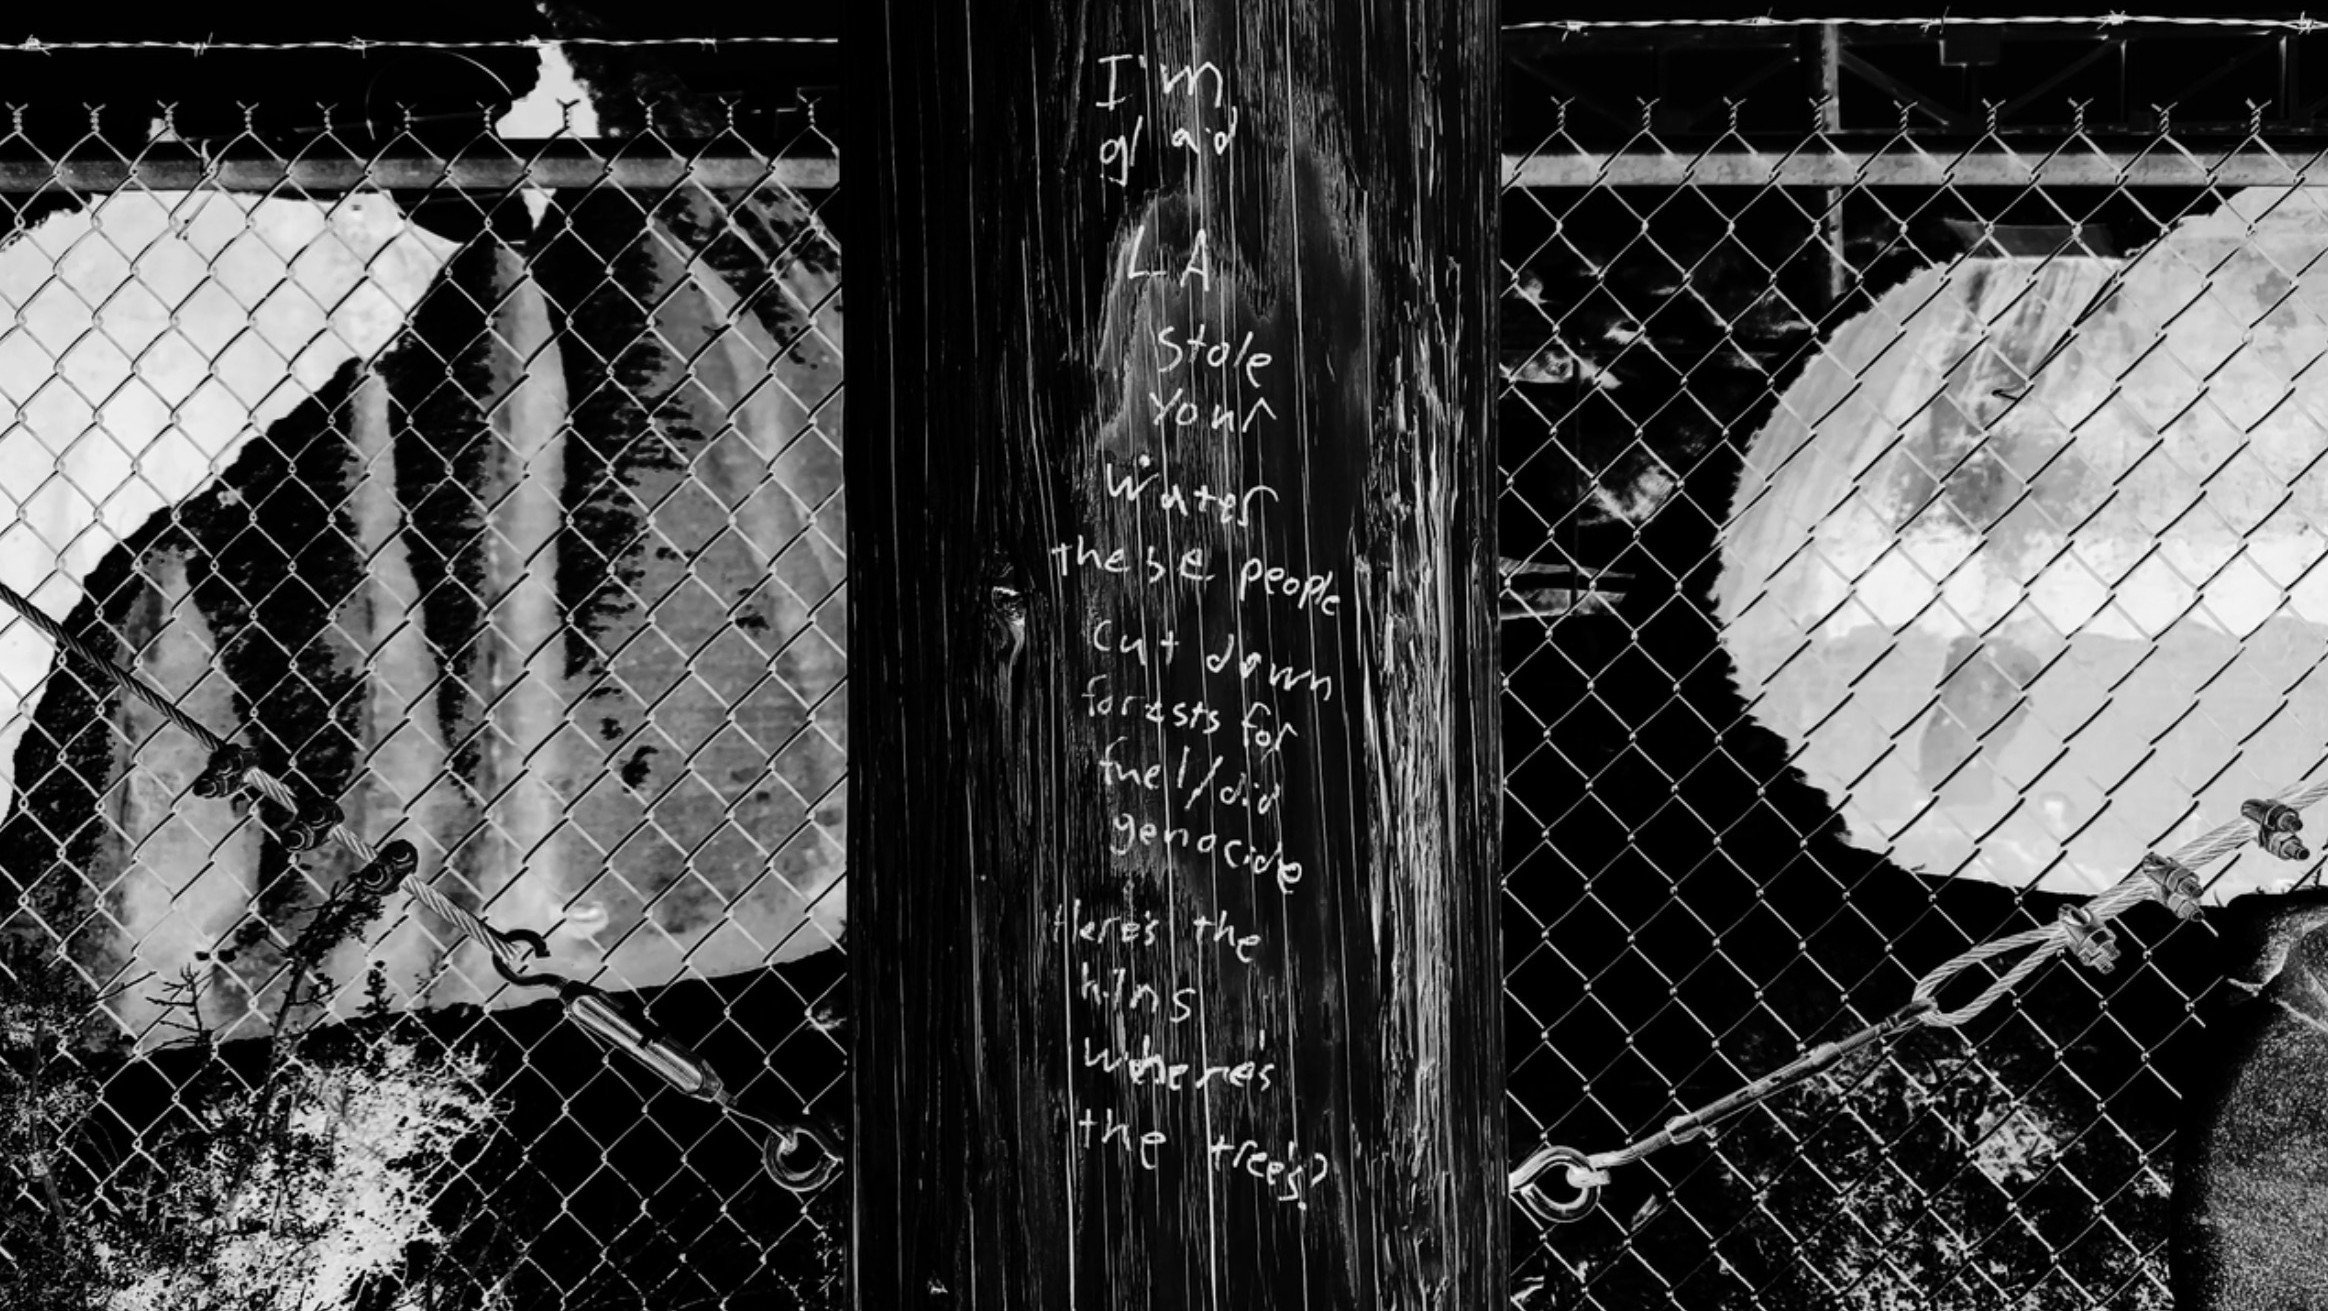 I'm
glad
LA
Stole
Your
Water
these people
cut down
forests for
fuel/did
genocide
Here's the
kilns
where's
the trees?